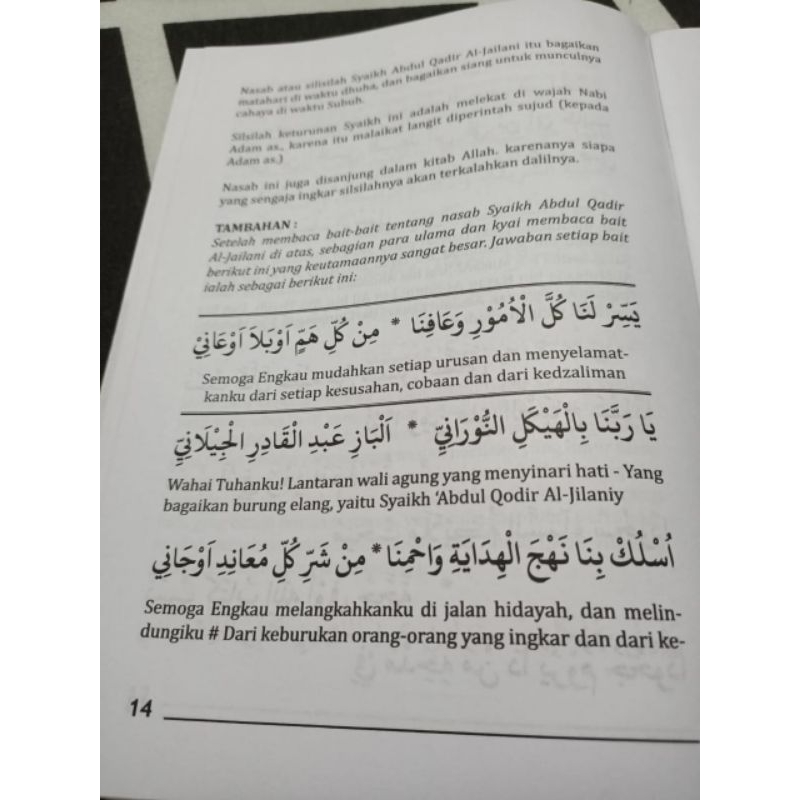 Nasab atau silislah Syaikh Abdul Qadir Al-Jailani itu bagaikan
matahari di waktu dhuha, dan bagaikan siang untuk munculnya
cahaya di waktu Subuh.
Silsilah keturunan Syaikh ini adalah melekat di wajah Nabi
Adam as., karena itu malaikat langit diperintah sujud (kepada
Adam as.)
Nasab ini juga disanjung dalam kitab Allah. karenanya siapa
yang sengaja ingkar silsilahnya akan terkalahkan dalilnya.
TAMBAHAN :
Setelah membaca bait-bait tentang nasab Syaikh Abdul Qadir
Al-Jailani di atas, sebagian para ulama dan kyai membaca bait
berikut ini yang keutamaannya sangat besar. Jawaban setiap bait
ialah sebagai berikut ini:
يَسِّرْ لَنَا كُلَّ الْأُمُوْرِ وَعَافِنَا * مِنْ كُلِّ هَمٍّ اَوْبَلاَ اَوْعَانِيْ
Semoga Engkau mudahkan setiap urusan dan menyelamat-
kanku dari setiap kesusahan, cobaan dan dari kedzaliman
يَا رَبَّنَا بِالْهَيْكَلِ النُّوْرَانِيِّ * اَلْبَازِ عَبْدِ الْقَادِرِ الْجِيْلَانِيِّ
Wahai Tuhanku! Lantaran wali agung yang menyinari hati - Yang
bagaikan burung elang, yaitu Syaikh ‘Abdul Qodir Al-Jilaniy
اُسْلُكْ بِنَا نَهْجَ الْهِدَايَةِ وَاحْمِنَا * مِنْ شَرِّ كُلِّ مُعَانِدٍ اَوْجَانِي
Semoga Engkau melangkahkanku di jalan hidayah, dan melin-
dungiku # Dari keburukan orang-orang yang ingkar dan dari ke-
14